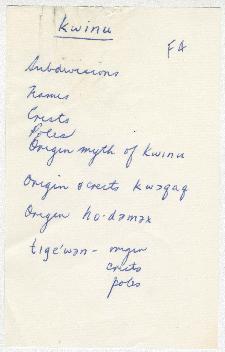 Kwinu
FA
Subdivisions
Names
Crests
Poles
Origin myth of Kwinu
Origin & crests kwəqaq
Origin ho·dəməx
tige'wən - origin
crests
poles